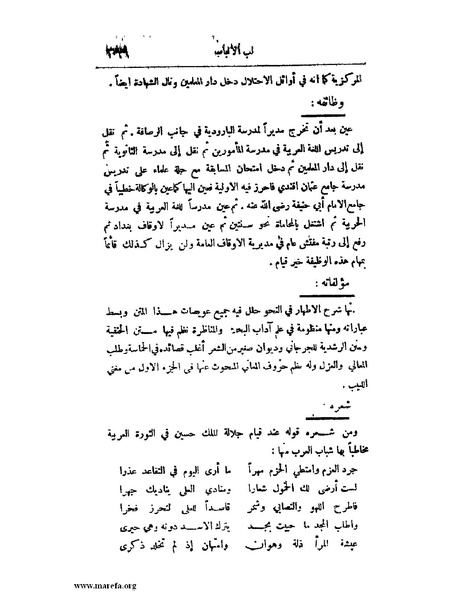 لب الألباب
المركزية كما انه في أوائل الاحتلال دخل دار المعلمين ونال الشهادة ايضاً .
وظائفه :
عين بعد أن تخرج مديراً لمدرسة البارودية في جانب الرصافة . ثم نقل
إلى تدريس اللغة العربية في مدرسة المأمورين ثم نقل إلى مدرسة الثانوية ثم
نقل إلى دار المعلمين ثم دخل امتحان المسابقة مع جملة علماء على تدريس
مدرسة جامع عثمان افندي فاحرز فيه الاولية فعين اليها كما عين بالوكالة خطيباً في
جامع الامام أبي حنيفة رضي الله عنه . ثم عين مدرساً للغة العربية في مدرسة
الحربية ثم اشتغل بالمحاماة نحو سنتين ثم عين مديراً لاوقاف بغداد ثم
رفع إلى رتبة مفتش عام في مديرية الاوقاف العامة ولن يزال كذلك قائماً
بمهام هذه الوظيفة خير قيام .
مؤلفاته :
منها شرح الاظهار في النحو حلل فيه جميع عويصات هذا المتن وبسط
عباراته ومنها منظومة في علم آداب البحث والمناظرة نظم فيها متن الحنفية
ومتن الرشدية للجرجاني وديوان صغير من الشعر أغلب قصائده في الحماسة وطلب
المعالي والغزل وله نظم حروف المعاني المبحوث عنها في الجزء الاول من مغني
اللبيب .
شعره
ومن شعره قوله عند قيام جلالة الملك حسين في الثورة العربية
مخاطباً بها شباب العرب منها :
جرد العزم وامتطي الحزم مهراً ما أرى اليوم في التقاعد عذرا
لست أرضى لك الخمول شعارا ومنادي العلى يناديك جهرا
فاطرح اللهو والتصابي وشمر قاصداً للعلى لتحرز فخرا
واطلب المجد ما حييت بجد يترك الاسد دونه وهي حيرى
عيشة المرأ ذلة وهوان وامتهان إذ لم تخلد ذكرى
www.marefa.org